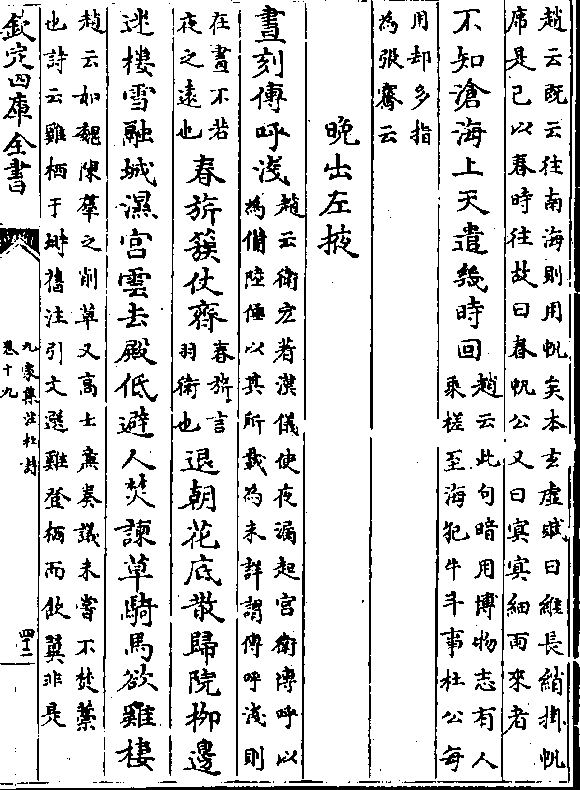 趙云既云往南海則用帆矣木玄虛賦曰維長綃掛帆
席是已以春時往故曰春帆公又曰冥冥細雨來者
不知滄海上天遣幾時回
趙云此句暗用博物志有人
乘槎至海犯牛斗事杜公每
用却多指
為張騫云
晚出左掖
晝刻傳呼淺
趙云衛宏著漢儀使夜漏起宮衛傳呼以
為備陸倕以其所載為未詳謂傳呼淺則
在晝不若
夜之遠也
春旂簇仗齊
春旂言
羽衛也
退朝花底散歸院柳邊
迷樓雪融城濕宮雲去殿低避人焚諫草騎馬欲雞棲
趙云如魏陳羣之削草又高士廉奏議未嘗不焚藁
也詩云雞栖于塒舊注引文選雞登栖而飲翼非是
欽定四庫全書
九家集注杜詩
卷十九
四十二